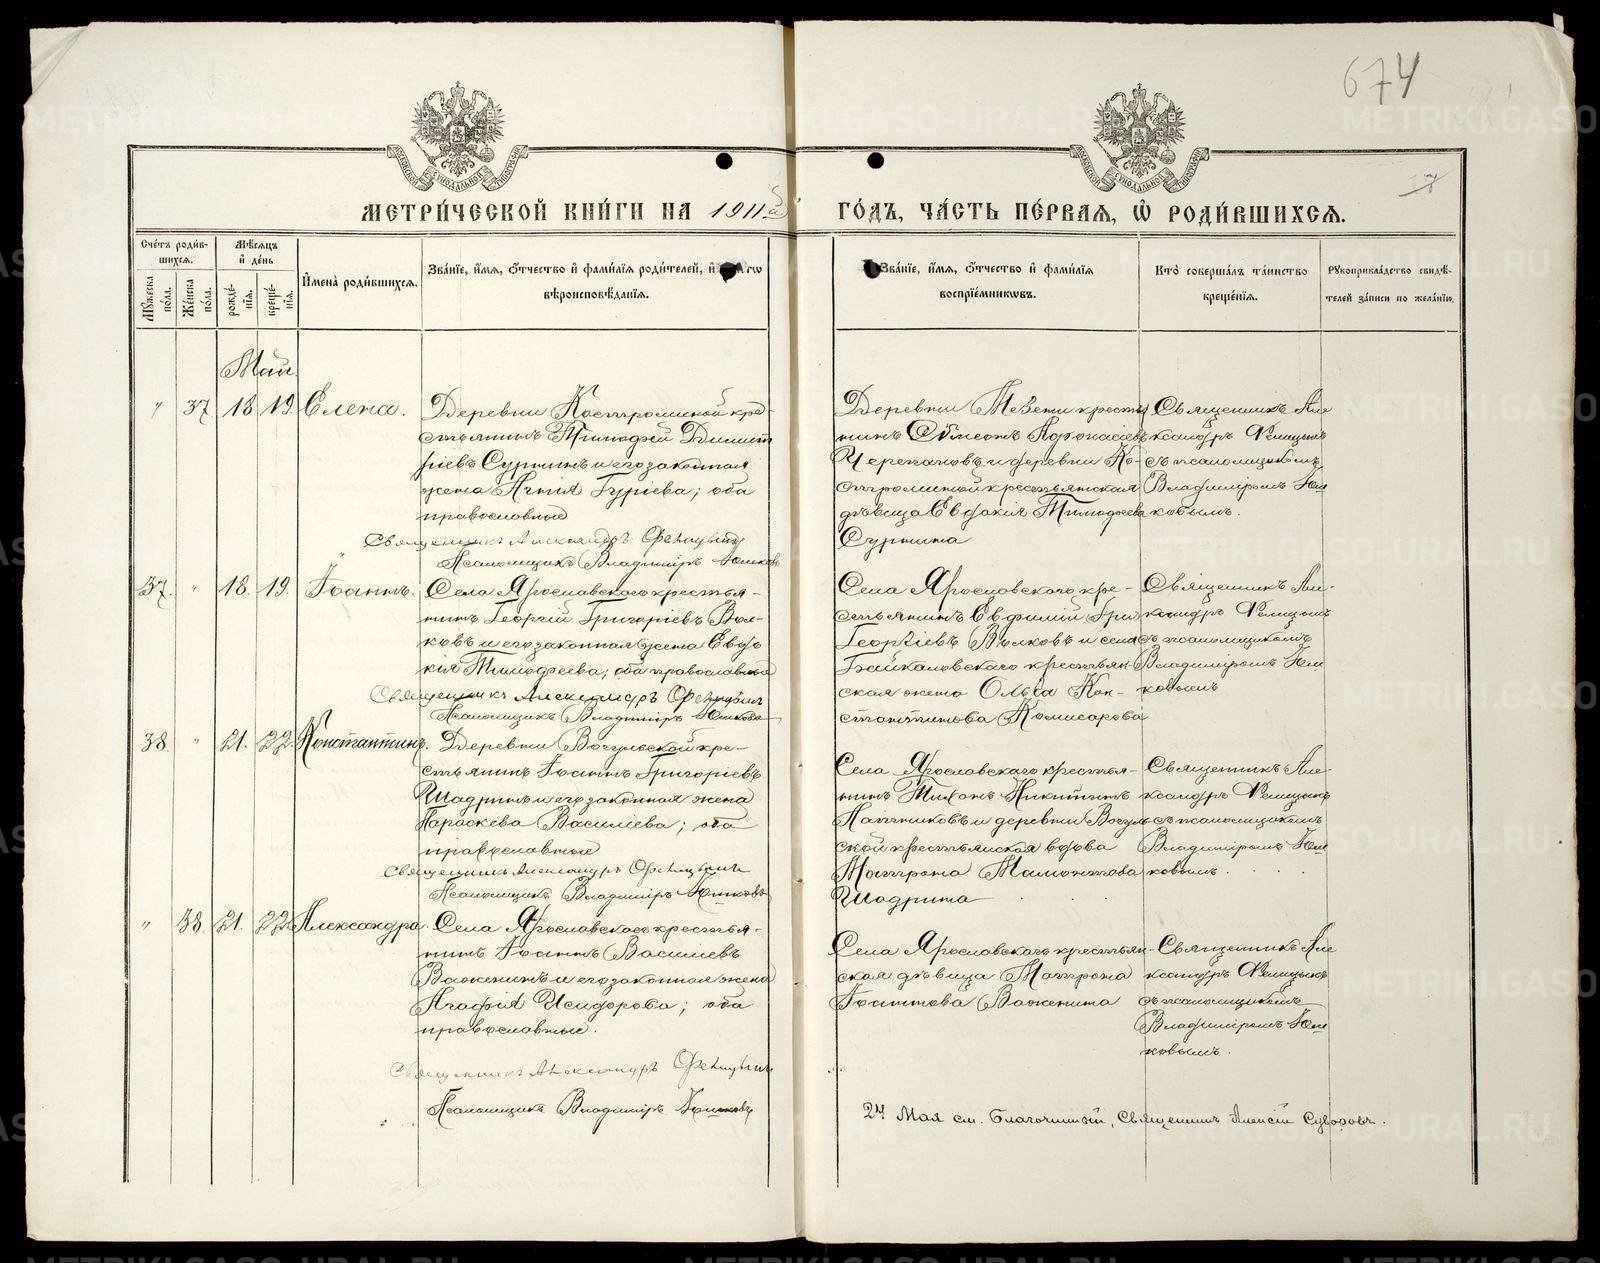 674
МОСКОВСКОЙ СѴНОДАЛЬНОЙ ТИПОГРАФІИ
МОСКОВСКОЙ СѴНОДАЛЬНОЙ ТИПОГРАФІИ
МЕТРИ́ЧЕСКОЙ КНИ́ГИ НА 1911й
ГО́ДЪ, ЧА́СТЬ ПЕ́РВАЯ, Ѡ҆ РОДИ́ВШИХСЯ.
Сче́тъ роди́в-
шихся.
Му́жеска по́ла.
Же́нска по́ла.
Мѣ́сяцъ
и҆ де́нь
рожде́-
нїя.
креще́-
нїя.
И҆мена̀ роди́вшихся.
Зва́нїе, и҆́мя, ѻ҆́тчество и҆ фами́лїя роди́телей, и҆
вѣроисповѣ́данїя.
Зва́нїе, и҆́мя, ѻ҆́тчество и҆ фами́лїя
восприе́мниковъ.
Кто̀ соверша́лъ та́инство
креще́нїя.
Рꙋкоприкла́дство свидѣ́-
телей за́писи по жела́нїю.
Май
" 37 18 19 Елена.
Деревни Костромской кре-
стьянинъ Тимофей Димит
ріевъ Суринъ и его законная
жена Анна Гуріева; оба
православные
Священникъ Александръ
Псаломщикъ Владиміръ Юшковъ
Деревни крестья
нинъ Сѵмеонъ Афанасіевъ
Черепановъ и деревни Ко-
стромской крестьянская
дѣвица Евдокія Тимофеева
Сурнина
Священникъ Але
ксандръ
съ псаломщикомъ
Владиміромъ Юш
ковымъ.
37. " 18. 19. Іоаннъ.
Села Ярославскаго крестья-
нинъ Георгій Григоріевъ Вол-
ковъ и его законная жена Евдо
кія Тимофеева; оба православные
Священникъ Александръ
Псаломщикъ Владиміръ Юшковъ
Села Ярославскаго кре-
стьянинъ Евфимій Гри
Георгіевъ Волковъ и села
Байкаловскаго крестьян
ская жена Ольга Кон-
стантинова Комисарова
Священникъ Але-
ксандръ
съ псаломщикомъ
Владиміромъ Юш
ковымъ
38. " 21. 22. Константинъ.
Деревни Вогульской кре-
стьянинъ Іоаннъ Григоріевъ
Шадринъ и его законная жена
Параскева Василіева; оба
православные
Священникъ Александръ
Псаломщикъ Владиміръ Юшковъ
Села Ярославскаго крестья-
нинъ Тихонъ Никитинъ
и деревни Вогуль
ской крестьянская вдова
Матрона Мамонтова
Шадрина
Священникъ Але-
ксандръ
съ псаломщикомъ
Владиміромъ Юш
ковымъ.
" 38. 21. 22. Александра.
Села Ярославскаго крестья-
нинъ Іоаннъ Василіевъ
Важенинъ и его законная жена
Агафія Исидорова; оба
православные.
Священникъ Александръ
Псаломщикъ Владиміръ Юшковъ
Села Ярославскаго крестьян-
ская дѣвица Матрона
Іоаннова Важенина
Священникъ Але
ксандръ
съ псаломщикомъ
Владиміромъ Юш
ковымъ.
24 Мая см. Благочинный, Священникъ Алексій Суворовъ.
METRIKI.GASO-URAL.RU